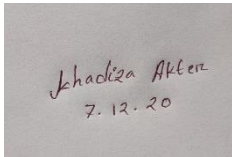 Khadiza Akter
7.12.20